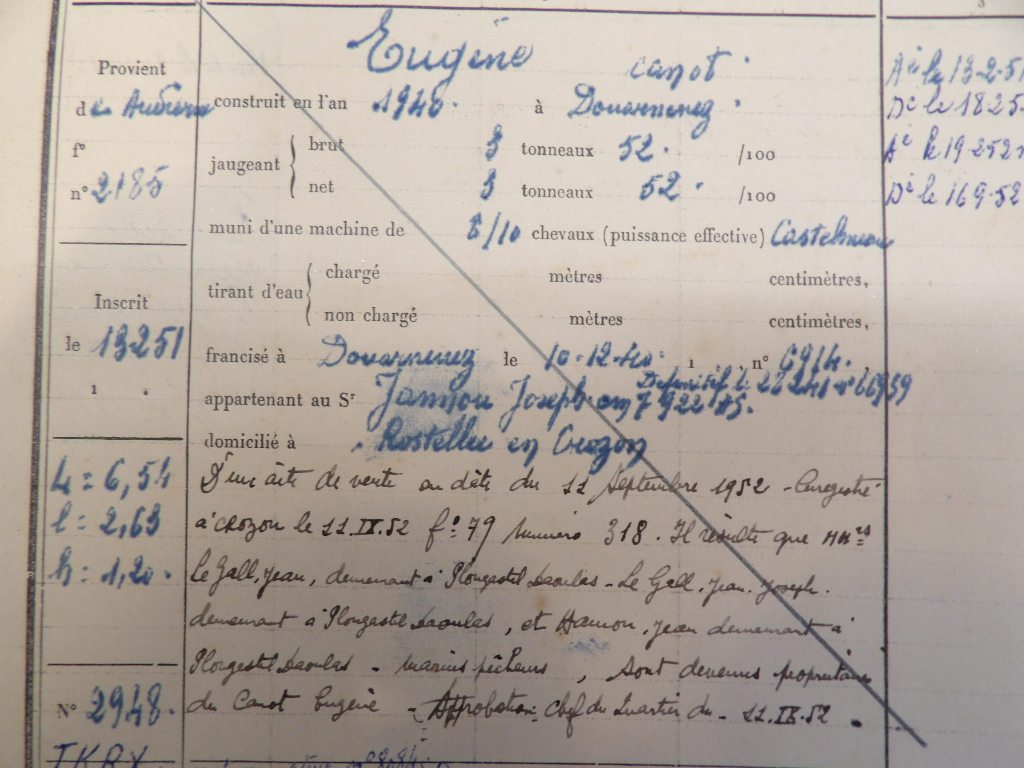 Provient
d e Audierne
f°
n° 2185
Inscrit
le 13-2-51
L = 6,54
l = 2,63
h = 1,20.
N° 2948.
Eugène canot
construit en l'an 1940. à Douarnenez
jaugeant
brut 3 tonneaux 52. /100
net 3 tonneaux 52. /100
muni d'une machine de 8/10 chevaux (puissance effective)
tirant d'eau
chargé mètres centimètres,
non chargé mètres centimètres,
francisé à Douarnenez le 10-12-40. , n° 6914.
Définitif
appartenant au Sr Joseph
domicilié à Rostellec en Crozon
D'un acte de vente en date du 11 Septembre 1952 - Enregistré
à CROZON le 11.IX.52 f° 79 Numéro 318. Il résulte que MM rs
Le Gall, Jean, demeurant à Plougastel Daoulas - Le Gall. Jean. Joseph.
demeurant à Plougastel Daoulas, et Hamon, Jean demeurant à
Plougastel Daoulas - marins pêcheurs, sont devenus propriétaires
du Canot Eugène - Approbation Chef du Quartier du - 11.IX.52.
Aé le 13-2-51
Dé le 18 2 5
Aé le 19-2 52
Dé le 16 9-52